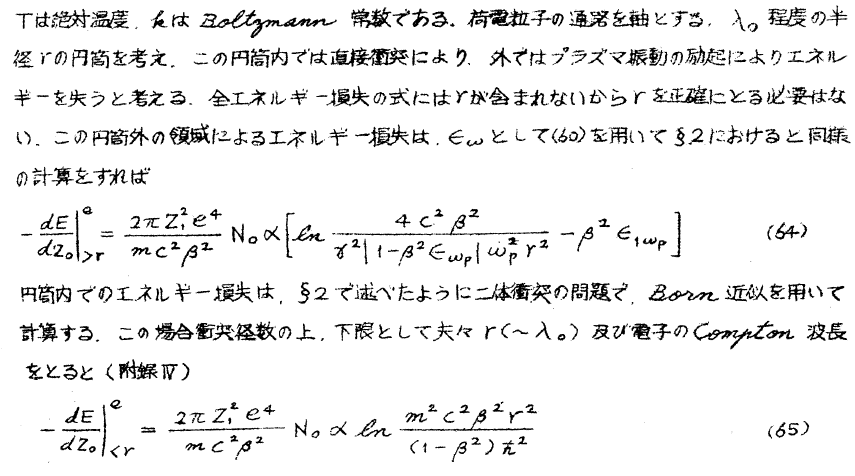 Tは絶対温度, kは Boltzmann 常数である. 荷電粒子の通路を軸とする, λ₀ 程度の半
径rの円筒を考え, この円筒内では直接衝突により, 外ではプラズマ振動の励起によりエネル
ギーを失うと考える. 全エネルギー損失の式にはrが含まれないからrを正確にとる必要はな
い. この円筒外の領域によるエネルギー損失は, ϵω として(60)を用いて §2におけると同様
の計算をすれば
-dE/dZ₀|ᵉ>r = 2πZ₁²e⁴/mc²β² N₀α[ln 4c²β²/γ²|1-β²ϵωp|ωp²r² - β²ϵ₁ωp] (64)
円筒内でのエネルギー損失は, §2で述べたように二体衝突の問題で, Born 近似を用いて
計算する. この場合衝突径数の上, 下限として夫々 r(~λ₀) 及び電子のCompton 波長
をとると (附録Ⅳ)
-dE/dZ₀|ᵉ<r = 2πZ₁²e⁴/mc²β² N₀α ln m²c²β²r²/(1-β²)ħ² (65)